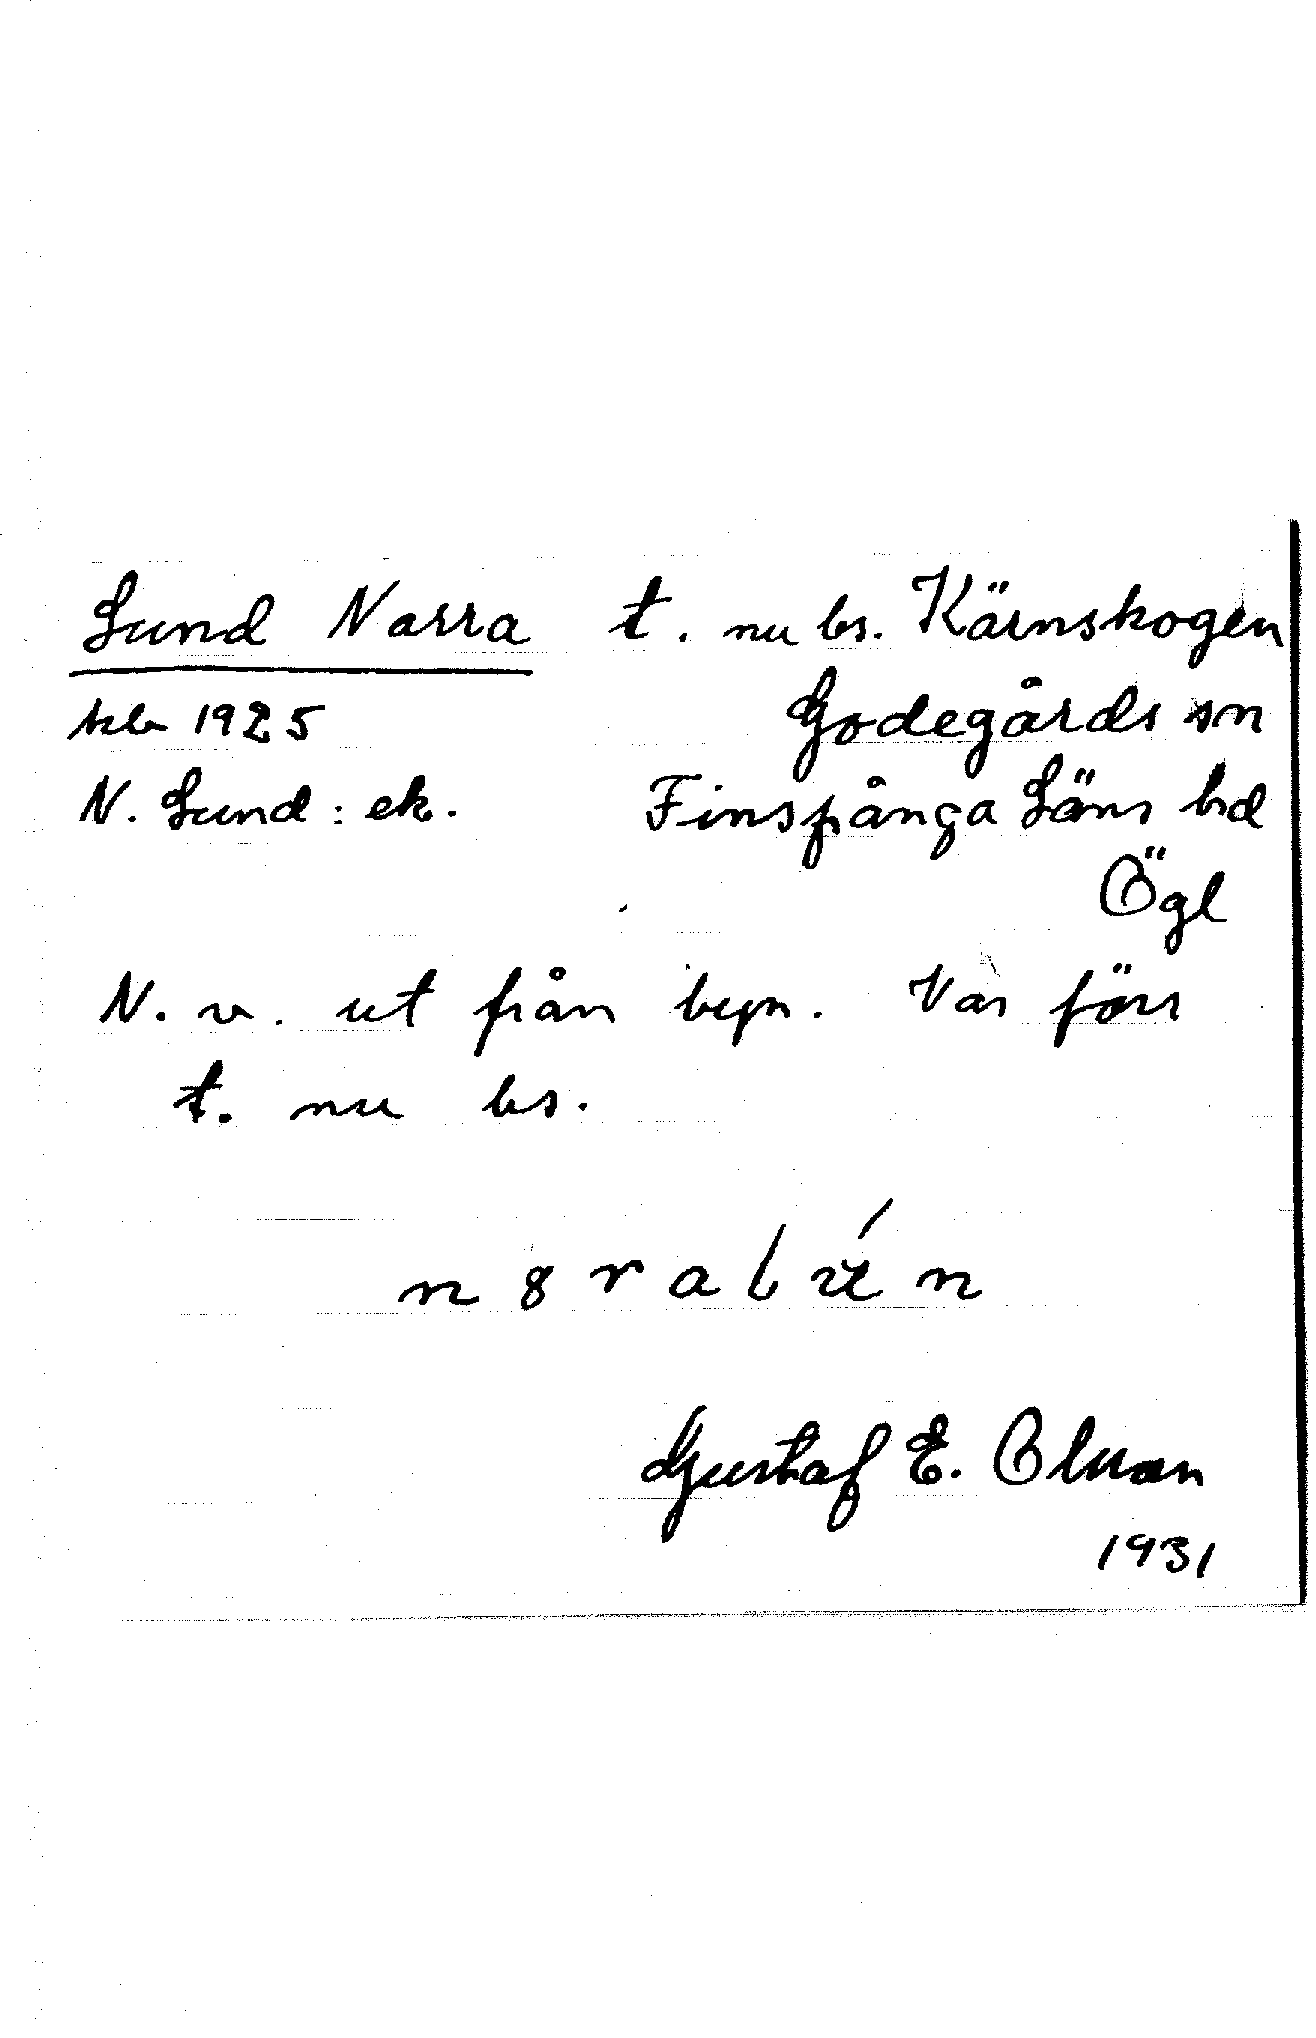 Lund Norra t. nu bs. Kärnskogen
1925 Godegårds sn
N. Lund: ek. Finspånga Läns hd
Ögl
N. v. ut från byn. Var förr
t. nu bs.
Gustaf E. Olsson
1931